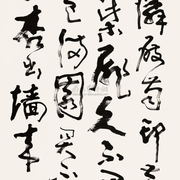 憐屐齒印
柴扉久不
色滿園關不
杏出墙来